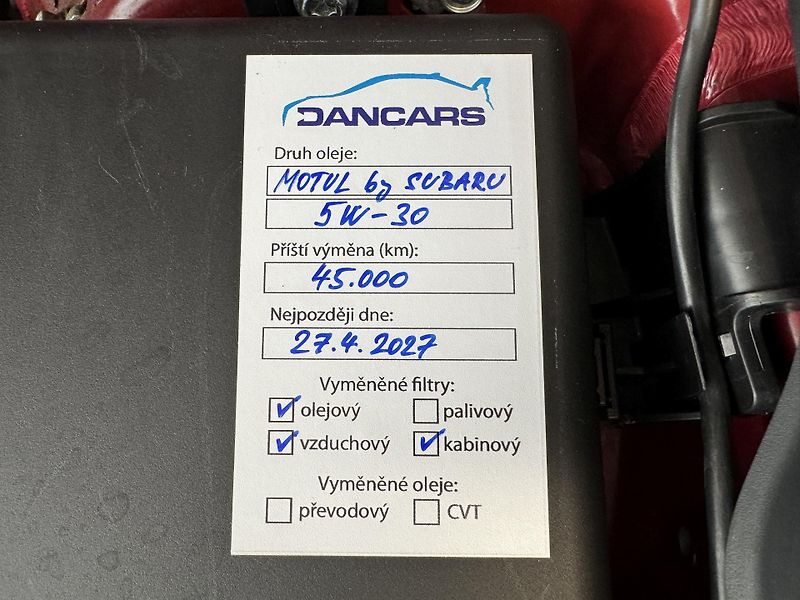 DANCARS
Druh oleje:
MOTUL by SUBARU
5W-30
Příští výměna (km):
45.000
Nejpozději dne:
27.4.2027
Vyměněné filtry:
olejový palivový
vzduchový kabinový
Vyměněné oleje:
převodový CVT